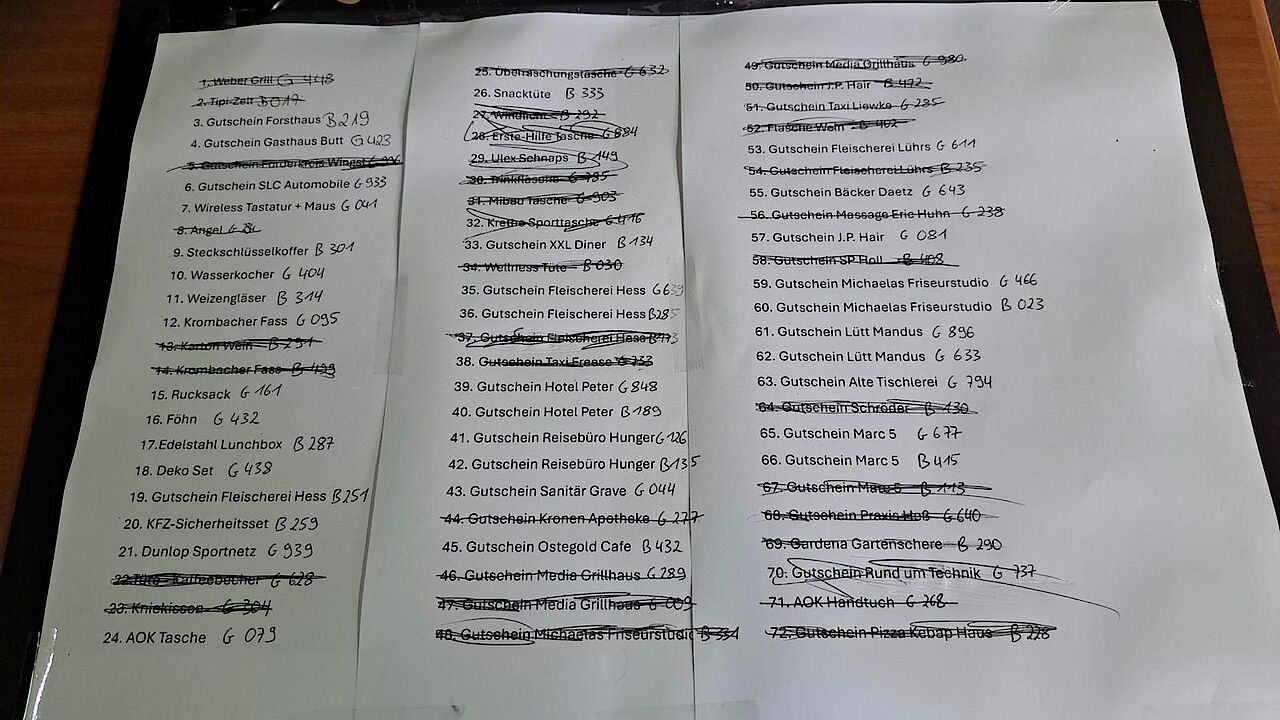 1. Weber Grill G 448
2. Tipi-Zelt B 017
3. Gutschein Forsthaus B 219
4. Gutschein Gasthaus Butt G 423
5. Gutschein Wingst
6. Gutschein SLC Automobile G 933
7. Wireless Tastatur + Maus G 041
8. Angel G
9. Steckschlüsselkoffer B 301
10. Wasserkocher G 404
11. Weizengläser B 314
12. Krombacher Fass G 095
13. Karton Wein B 291
14. Krombacher Fass B 499
15. Rucksack G 161
16. Föhn G 432
17. Edelstahl Lunchbox B 287
18. Deko Set G 438
19. Gutschein Fleischerei Hess B 251
20. KFZ-Sicherheitsset B 259
21. Dunlop Sportnetz G 939
22. Tüte + Kaffeebecher G 628
23. Kniekissen G 304
24. AOK Tasche G 079
25. Überraschungstasche G 632
26. Snacktüte B 333
27. Windlicht B 292
28. Erste-Hilfe Tasche G 684
29. Ulex Schnaps B 149
30. Trinkflasche G 785
31. Mibau Tasche G 903
32. Krethe Sporttasche G 416
33. Gutschein XXL Diner B 134
34. Wellness Tüte B 030
35. Gutschein Fleischerei Hess G 639
36. Gutschein Fleischerei Hess B 285
37. Gutschein Fleischerei Hess
38. Gutschein Taxi Freese G 233
39. Gutschein Hotel Peter G 848
40. Gutschein Hotel Peter B 189
41. Gutschein Reisebüro Hunger G 126
42. Gutschein Reisebüro Hunger B 135
43. Gutschein Sanitär Grave G 044
44. Gutschein Kronen Apotheke G 277
45. Gutschein Ostegold Cafe B 432
46. Gutschein Media Grillhaus G 289
47. Gutschein Media Grillhaus G 009
48. Gutschein Michaelas Friseurstudio B 334
49. Gutschein Media Grillhaus G 980
50. Gutschein J.P. Hair B 472
51. Gutschein Taxi Liewke G 285
52. Flasche Wein B 402
53. Gutschein Fleischerei Lührs G 611
54. Gutschein Fleischerei Lührs B 235
55. Gutschein Bäcker Daetz G 643
56. Gutschein Massage Eric Huhn G 238
57. Gutschein J.P. Hair G 081
58. Gutschein SP Holl B
59. Gutschein Michaelas Friseurstudio G 466
60. Gutschein Michaelas Friseurstudio B 023
61. Gutschein Lütt Mandus G 896
62. Gutschein Lütt Mandus G 633
63. Gutschein Alte Tischlerei G 794
64. Gutschein Schröder B 130
65. Gutschein Marc 5 G 677
66. Gutschein Marc 5 B 415
67. Gutschein Marc 5 B 113
68. Gutschein Praxis Heß G 640
69. Gardena Gartenschere B 290
70. Gutschein Rund um Technik G 737
71. AOK Handtuch G 268
72. Gutschein Pizza Kebap Haus B 228